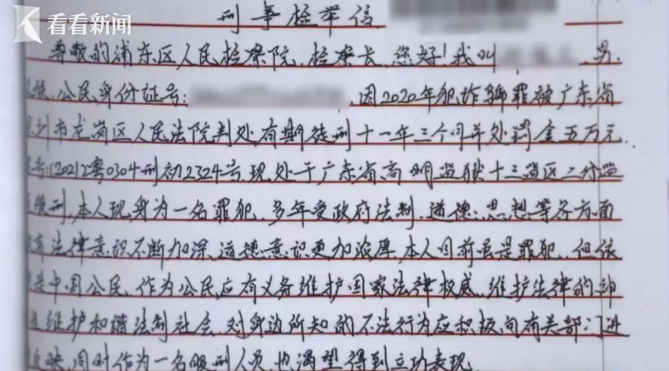 看看新闻
刑事检举信
尊敬的浦东区人民检察院、检察长、您好!我叫 男.
公民身份证号: 因2020年犯诈骗罪被广东省
圳市龙岗区人民法院判处有期徒刑十一年三个月并处罚金五万元
号:(2021)粤0304刑初2324号.现处于广东省高明监狱十三监区二分监
服刑.本人现身为一名罪犯、多年受政府法制、道德、思想等各方面
法律意识不断加深、道德意识更加浓厚.本人目前虽是罪犯、但依
是中国公民、作为公民应有义务维护国家法律权威、维护法律的
维护和谐法制社会、对身边所知的不法行为应积极向有关部门进
反映、同时作为一名服刑人员.也渴望得到立功表现.